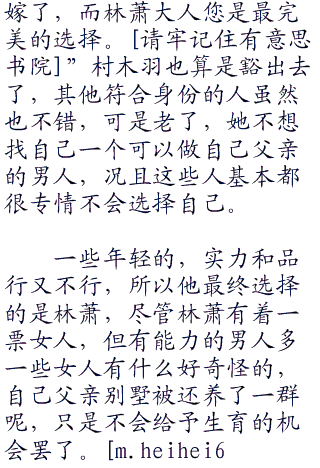 嫁了，而林萧大人您是最完
美的选择。[请牢记住有意思
书院]”村木羽也算是豁出去
了，其他符合身份的人虽然
也不错，可是老了，她不想
找自己一个可以做自己父亲
的男人，况且这些人基本都
很专情不会选择自己。
一些年轻的，实力和品
行又不行，所以他最终选择
的是林萧，尽管林萧有着一
票女人，但有能力的男人多
一些女人有什么好奇怪的，
自己父亲别墅被还养了一群
呢，只是不会给予生育的机
会罢了。[m.heihei6